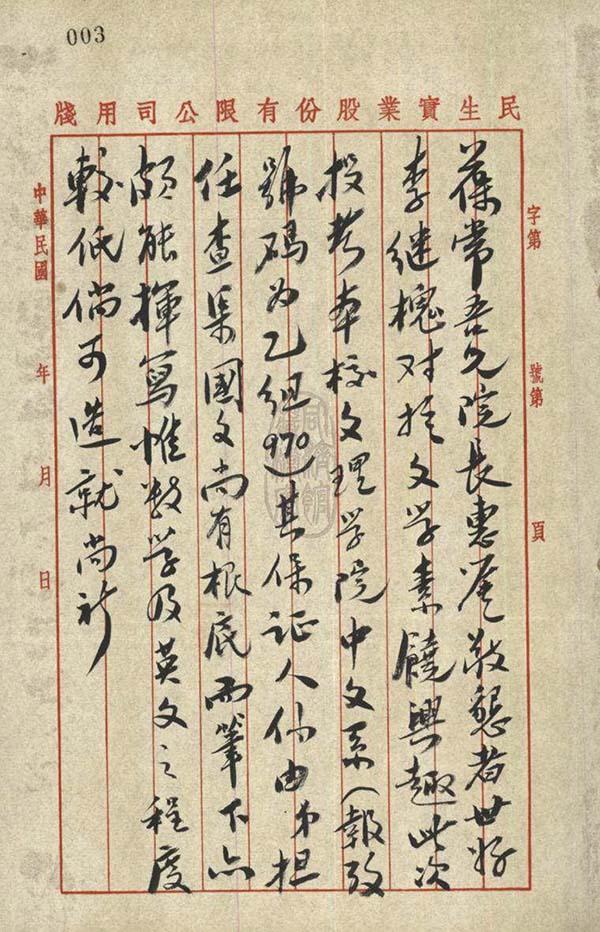 003
民生實業股份有限公司用牋
字第 號第 頁
葆常吾兄院長惠鑒敬懇者世好
李继槐对於文学素饒興趣此次
投考本校文理学院中文系(報攷
號碼为乙组970)其保证人係由弟担
任查渠國文尚有根底而筆下亦
頗能揮寫惟数学及英文之程度
較低倘可造就尚祈
中華民國 年 月 日